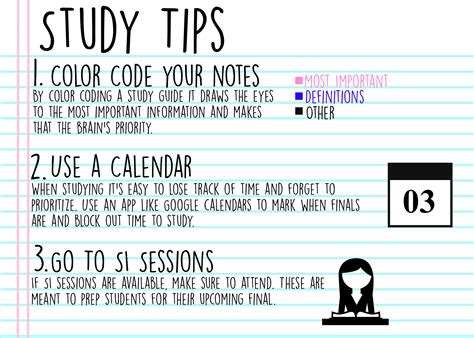 STUDY TIPS
1. COLOR CODE YOUR NOTES
BY COLOR CODING A STUDY GUIDE IT DRAWS THE EYES
TO THE MOST IMPORTANT INFORMATION AND MAKES
THAT THE BRAIN'S PRIORITY.
MOST IMPORTANT
DEFINITIONS
OTHER
2. USE A CALENDAR
WHEN STUDYING IT'S EASY TO LOSE TRACK OF TIME AND FORGET TO
PRIORITIZE. USE AN APP LIKE GOOGLE CALENDARS TO MARK WHEN FINALS
ARE AND BLOCK OUT TIME TO STUDY.
03
3. GO TO SI SESSIONS
IF SI SESSIONS ARE AVAILABLE, MAKE SURE TO ATTEND. THESE ARE
MEANT TO PREP STUDENTS FOR THEIR UPCOMING FINAL.